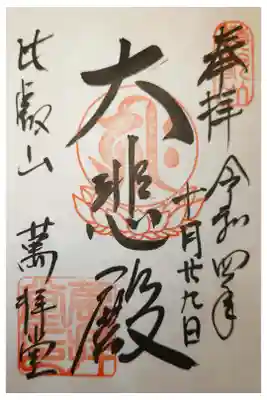 奉拝
令和四年
十月廿九日
大悲殿
比叡山
萬拝堂